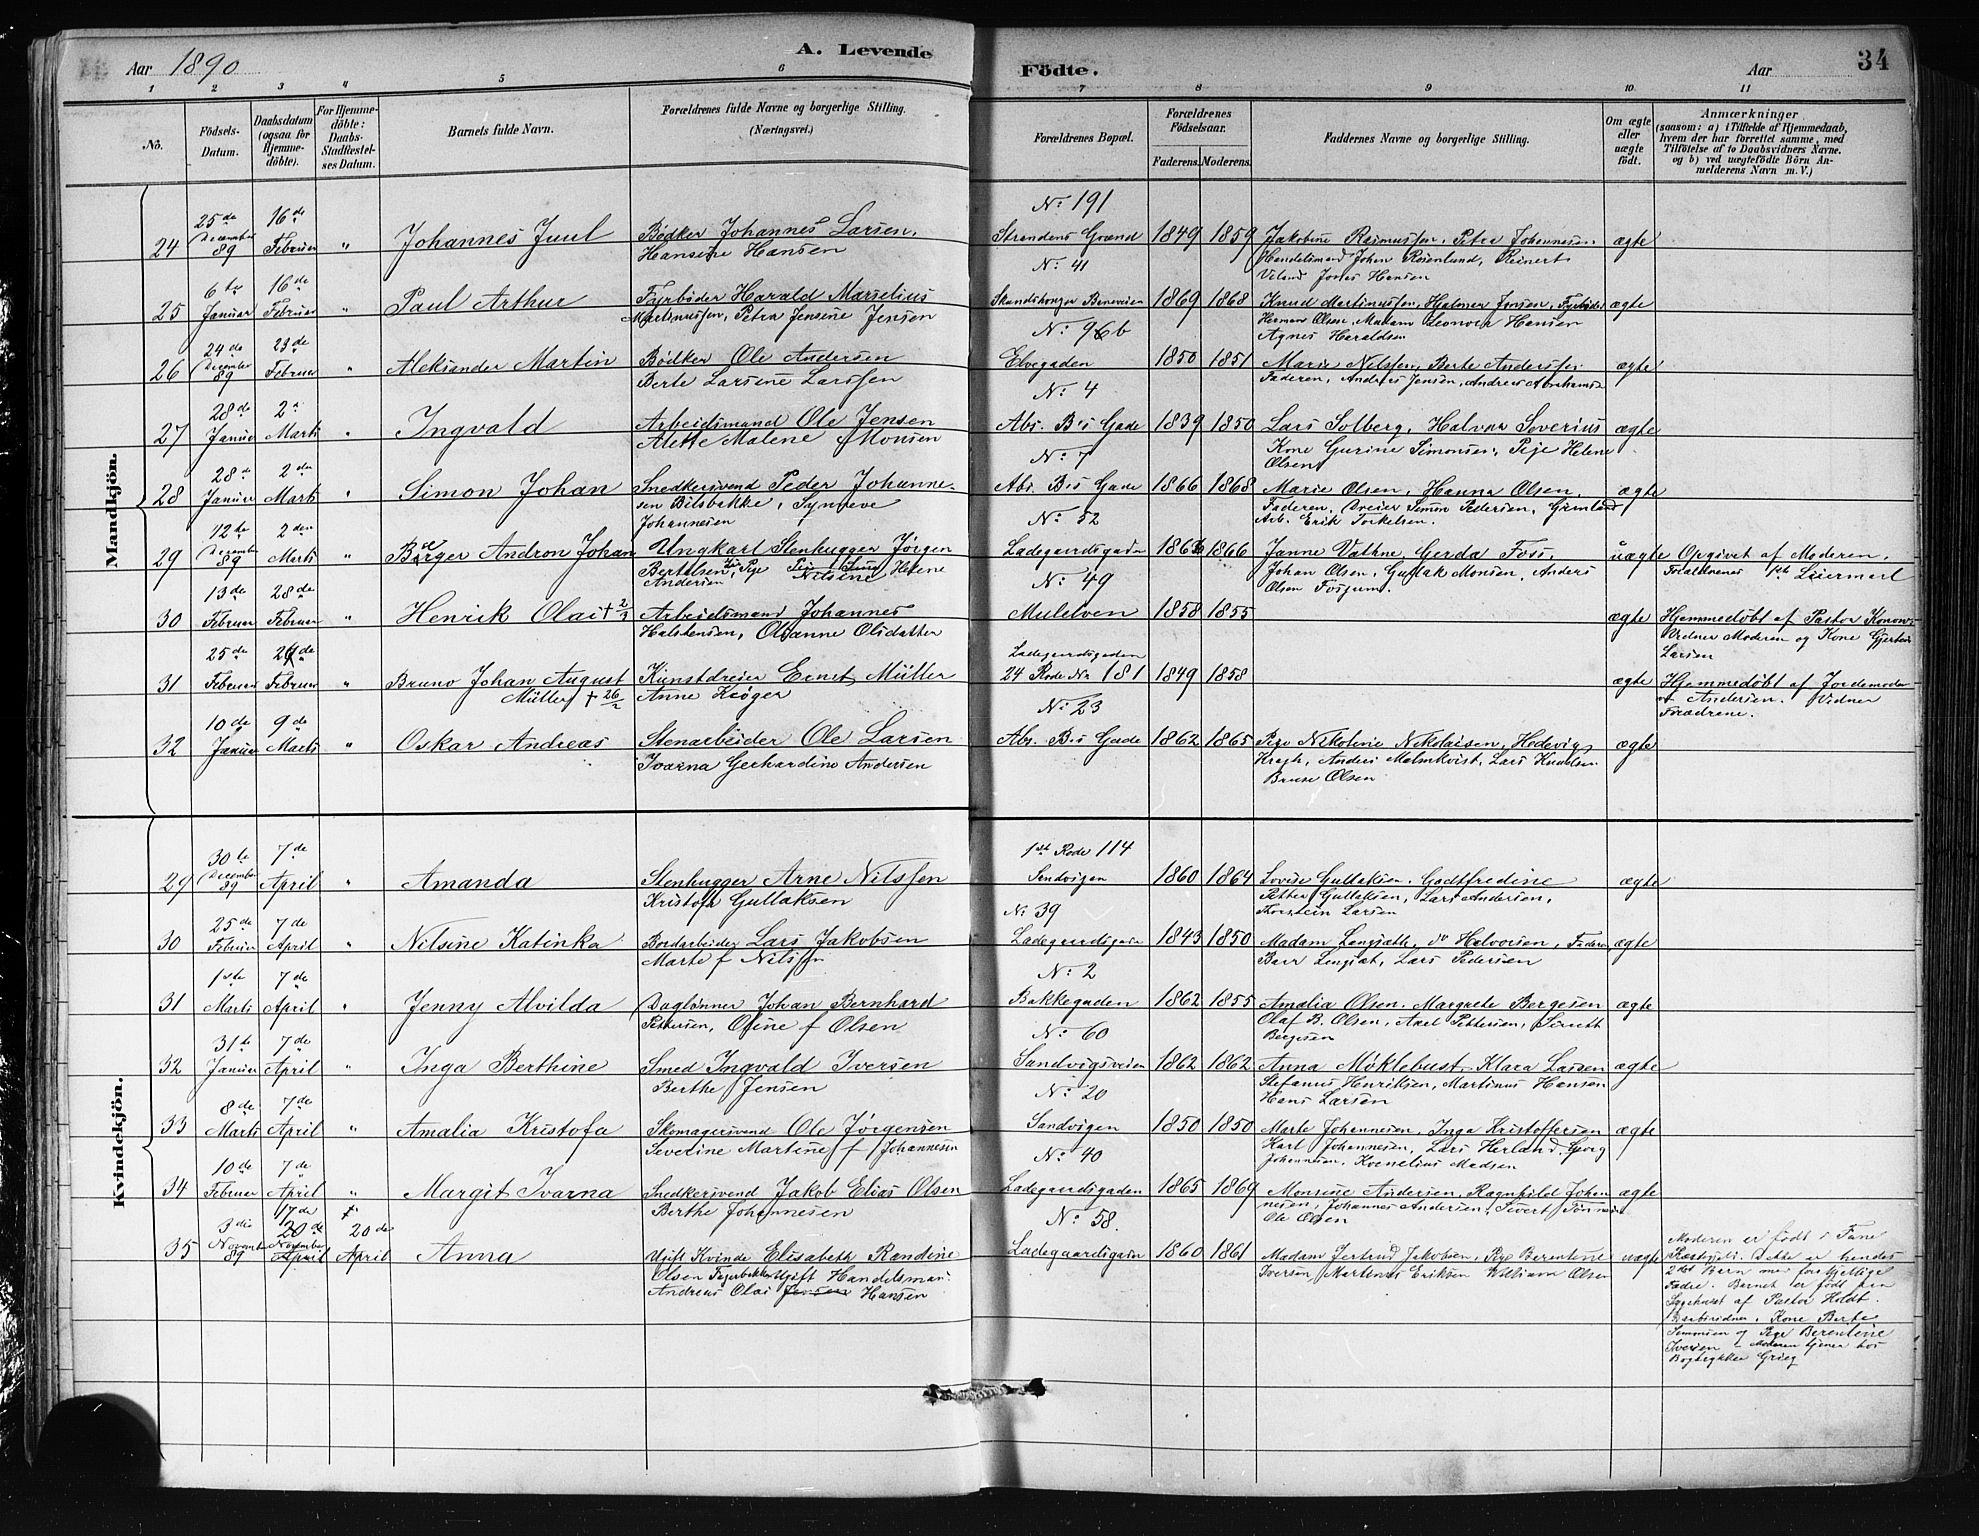 Aar 1890
A. Levende
Födte.
Aar
34
1 2 3 " 5 6 7 8 9 10 11
No.
Födsels-Datum.
Daabsdatum (ogsaa for Hjemmedöbte).
For Hjemmedöbte: Daabs-Stadfestelses Datum.
Barnets fulde Navn.
Forældrenes fulde Navne og borgerlige Stilling. (Næringsvei.)
Forældrenes Bopæl.
Forældrenes Födselsaar.
Faderens. Moderens.
Faddernes Navne og borgerlige Stilling.
Om ægte eller uægte födt.
Anmærkninger
(saasom: a) i Tilfælde af Hjemmedaab, hvem der har forrettet samme, med Tilföielse af to Daabsvidners Navne. og b) ved uægtefödte Börn Anmelderens Navn m. V.)
Mandkjön.
24 25de December 89 16de Februar " Johannes Juul Bødker Johannes Larsen, Hansine Hansen No 191 Strandens Grænd 1849 1859 Jakobine Rasmussen, Petra Johannesen Handelsmand Johan Rosenlund, Reinert Jonas Hansen ægte
25 6te Januar 16de Februar " Paul Arthur Fyrbøder Harald Marselius Martinussen, Petra Jensine Jensen No 41 1869 1868 Knud Martinussen, Halmer Jensen, Fyrbøder Herman Olsen, Madam Leonora Hansen Agnes Haraldsen ægte
26 24de December 89 23de Februar " Aleksander Martin Bødker Ole Andersen Berte Larsine Larssen No 96 b Elvegaden 1850 1851 Marie Nilssen, Berte Anderssen Faderen, Andreas Jensen, ægte
27 28de Januar 2n Marts " Ingvald Arbeidsmand Ole Jensen Alette Malene f Monsen No 4 Abs. B's Gade 1839 1850 Lars Solberg, Halvor Soverius Kone Gurine Simonsen, Pige Helene Olsen ægte
28 28de Januar 2den Marts " Simon Johan Snedkersvend Peder Johannesen Bilsbakke, Synneve Johannesen No 7 Abs. B's Gade 1866 1868 Marie Olsen, Hanna Olsen, Faderen, Simon Pedersen, Arb. Erik Torkelsen. ægte
29 12te December 89 2den Marts " Børger Andron Johan Ungkarl Stenhugger Jørgen Bertelsen, Pige Nilsine Helene Andersen No 52 Ladegaardsgaden 1866 Janne Vathne, Gerda Foss, Johan Olsen, Gullak Monsen, Anders Olsen Fosgum. uægte Opgivet af Moderen. Forældrenes 1ste Leiermaal
30 13de Februar 28de Februar " Henrik Olai † 2/3 Arbeidsmand Johannes Halstensen, Olianne Olsdatter No 49 Mulelven 1858 1855 ægte Hjemmedøbt af Pastor Konow Vidner Moderen og Kone Gjertine Larsen
31 25de Februar 26de Februar " Bruno Johan August Müller † 26/2 Kunstdreier Ernst Müller Anne Krøger Ladegaardsgaden 24 Rode No 181 1849 1858 ægte Hjemmedøbt af Jordemoder Andersen. Vidner Forældrene.
32 10de Januar 9de Marts " Oskar Andreas Stenarbeider Ole Larsen Ivarna Gerhardine Andersen No 23 Abs. B's Gade 1862 1865 Pige Nikoline Nikolaisen, Hedevig Kragh, Anders Malmkvist, Lars Knudsen Bruse Olsen ægte
Kvindekjön.
29 30te December 89 7de April " Amanda Stenhugger Arne Nilssen Kristofa Gullaksen 1ste Rode 114 Sandvigen 1860 1864 Lovise Gullaksen, Godtfredine Petter Gulleksen, Lars Andersen, Thorstein Larsen ægte
30 25de Februar 7de April " Nilsine Katinka Bordarbeider Lars Jakobsen Marte f Nilssen No 39 Ladegaardsgaden 1843 1850 Madam Langsæth, do Halvorsen, Faderen, Lars Pedersen ægte
31 1ste Marts 7de April " Jenny Alvilda Daglønner Johan Bernhard Pettersen, Oline f Olsen No 2 Bakkegaden 1862 1855 Amalia Olsen, Margrete Bergesen Olaf B. Olsen, Axel Pettersen, Bergesen ægte
32 31te Januar 7de April " Inga Berthine Smed Ingvald Iversen Berthe Jensen No 60 Sandvigsveien 1862 1862 Anna Møklebust, Klara Larsen Stefanus Henriksen, Martinus Hansen Hans Larsen ægte
33 8de Marts 7de April " Amalia Kristofa Skomagersvend Ole Jørgensen Severine Martine f Johannesen No 20 Sandvigen 1850 1850 Marte Johannesen, Inga Kristoffersen Karl Johannesen, Lars Herland, Georg Johannesen, Kornelius Madsen ægte
34 10de Februar 7de April " Margit Ivarna Snedkersvend Jakob Elias Olsen Berthe Johannesen No 40 Ladegaardsgaden 1865 1869 Monsine Andersen, Ragnhild Johannesen, Johannes Andersen, Sivert Ole Olsen ægte
35 3die November 89 17de 20de November April 20de April Anna Ugift Kvinde Elisabeth Randine Olsen Fyrbøder Ugift Handelsmand Andreas Olai Jensen Hansen No 58. Ladegaardsgaden 1860 1861 Madam Jertrud Jakobsen, Pige Berentine Iversen, Martinus Eriksen William Olsen uægte Moderen er født i Fane Præstegjeld. Dette er hendes 2det Barn med forskjellige Fædre. Barnet er født paa Sygehuset af Pastor Holdt. Daabsvidner, Kone Berte Simonsen og Pige Berentine Iversen Moderen tjener hos Bogtrykker Grieg